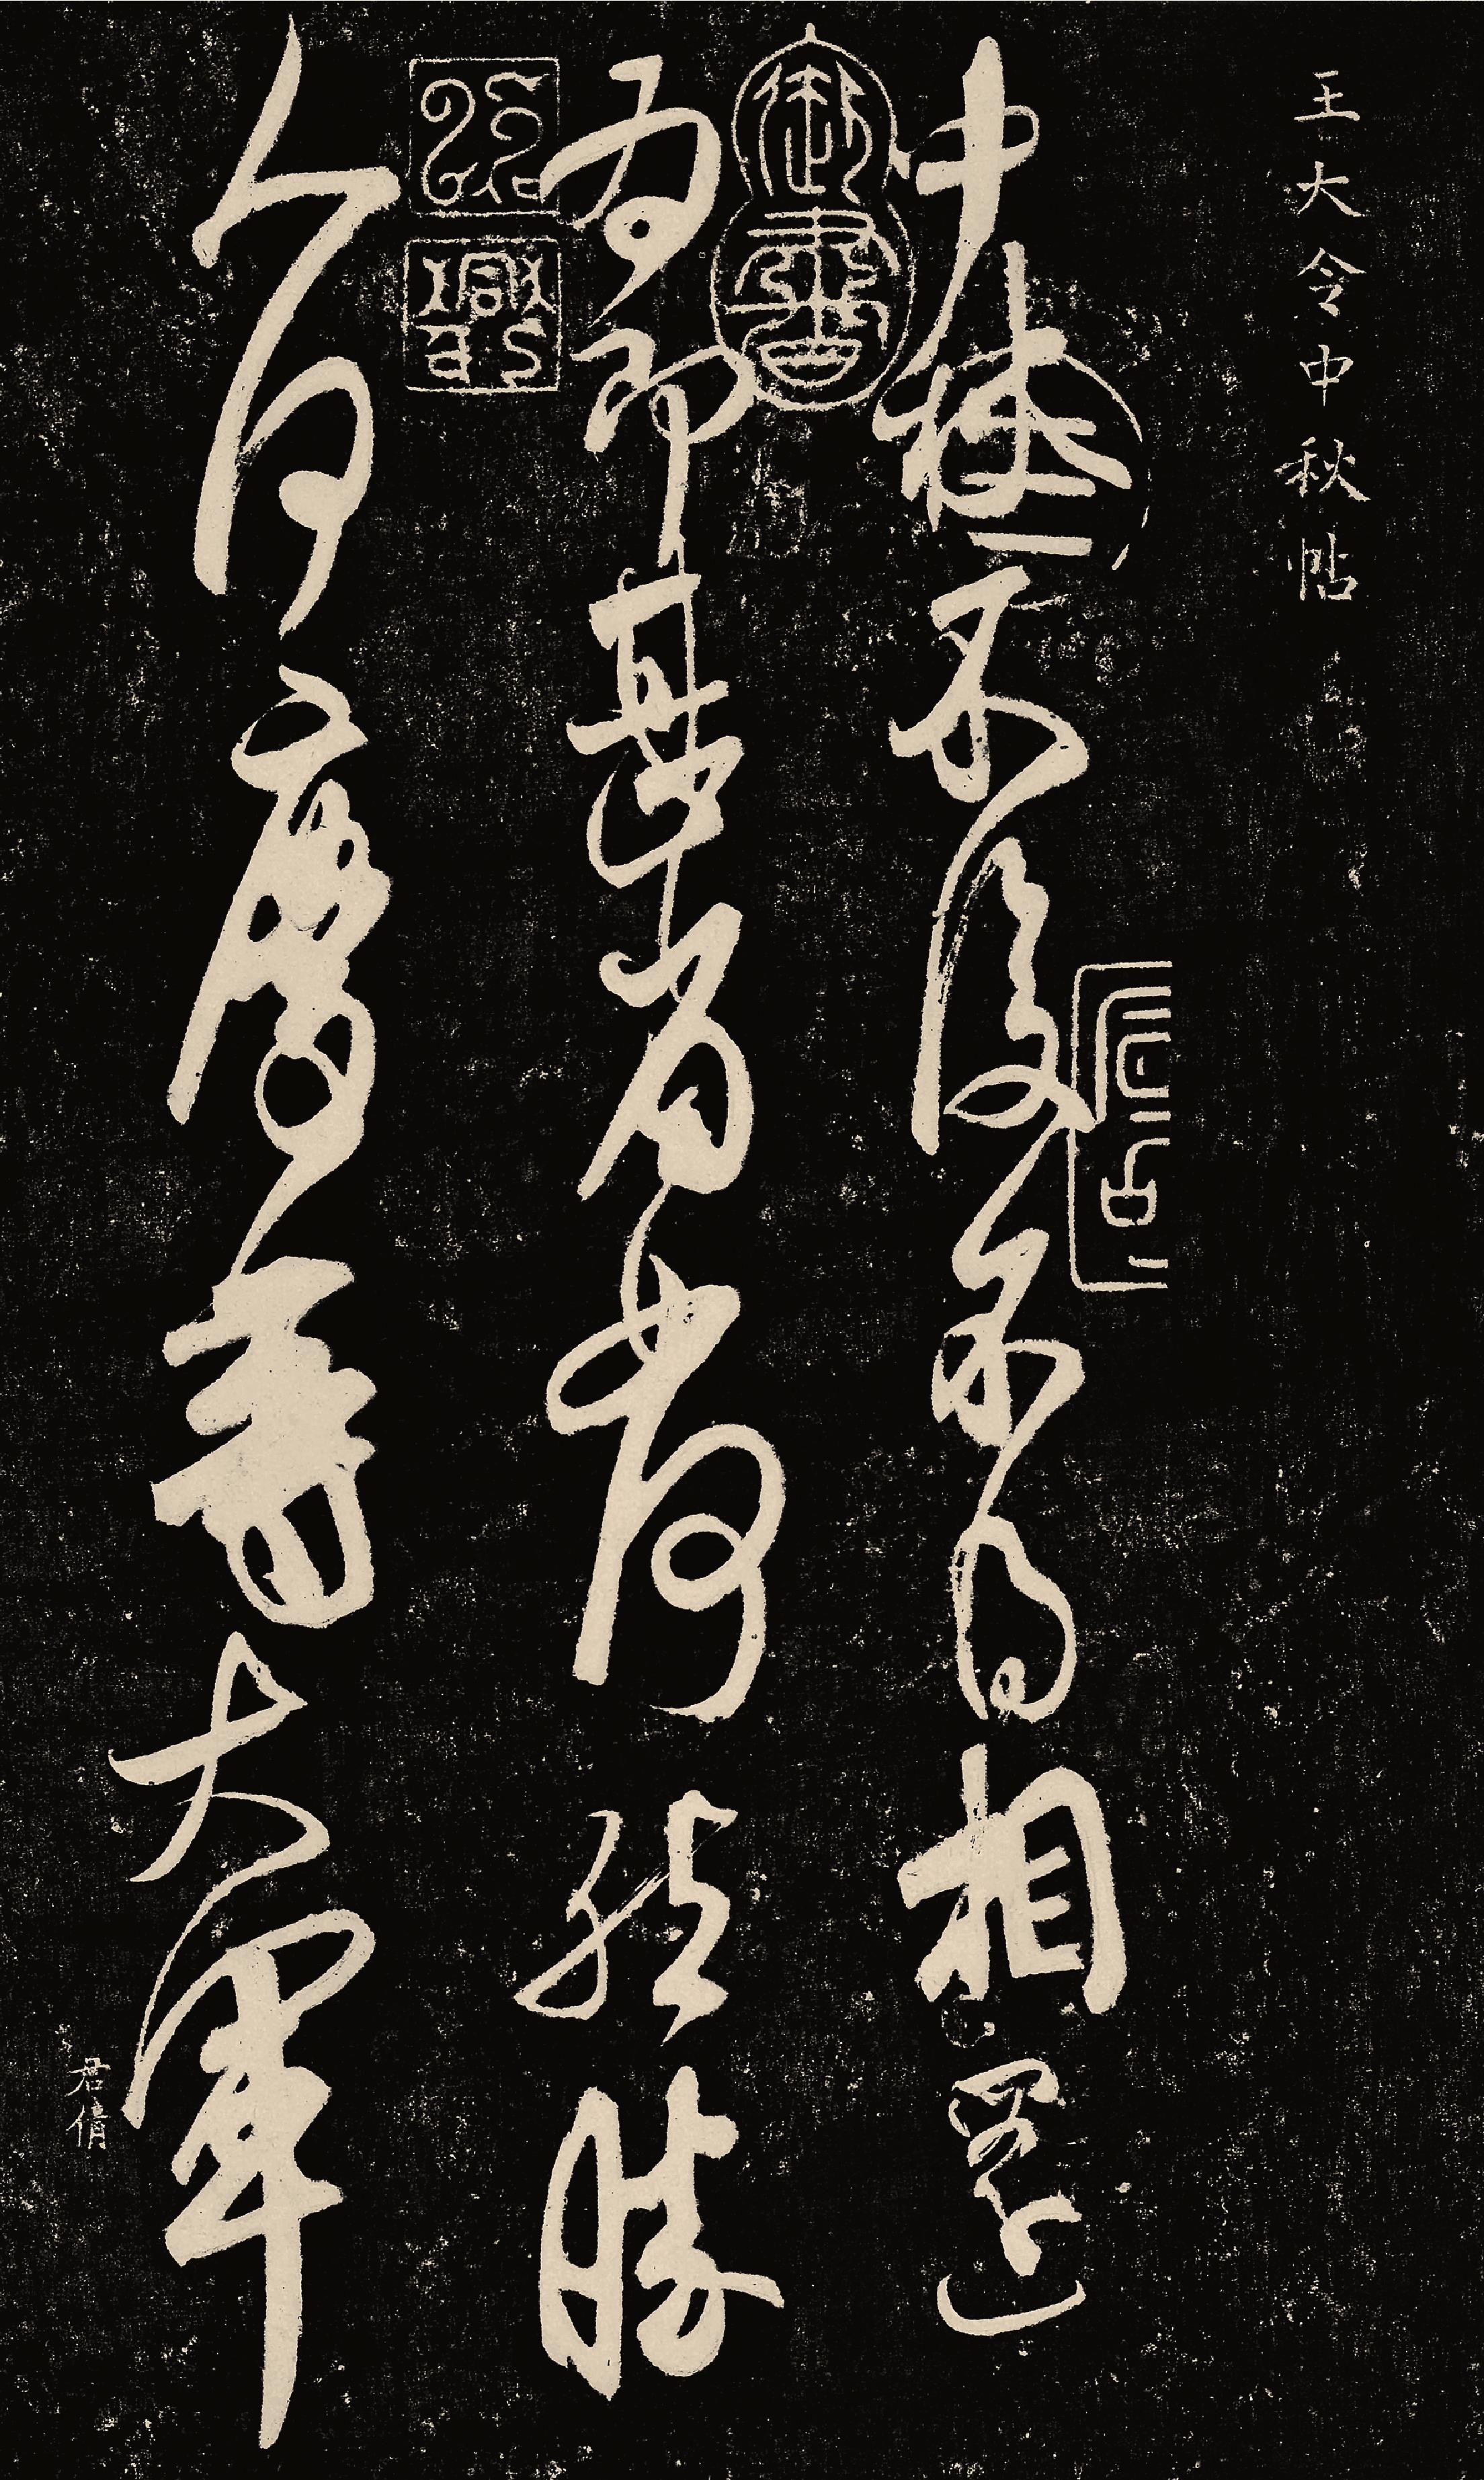 王大令中秋帖
中秋不復不得相還
御書
為即甚省如何然勝
紹興
人何慶等大軍
君倩